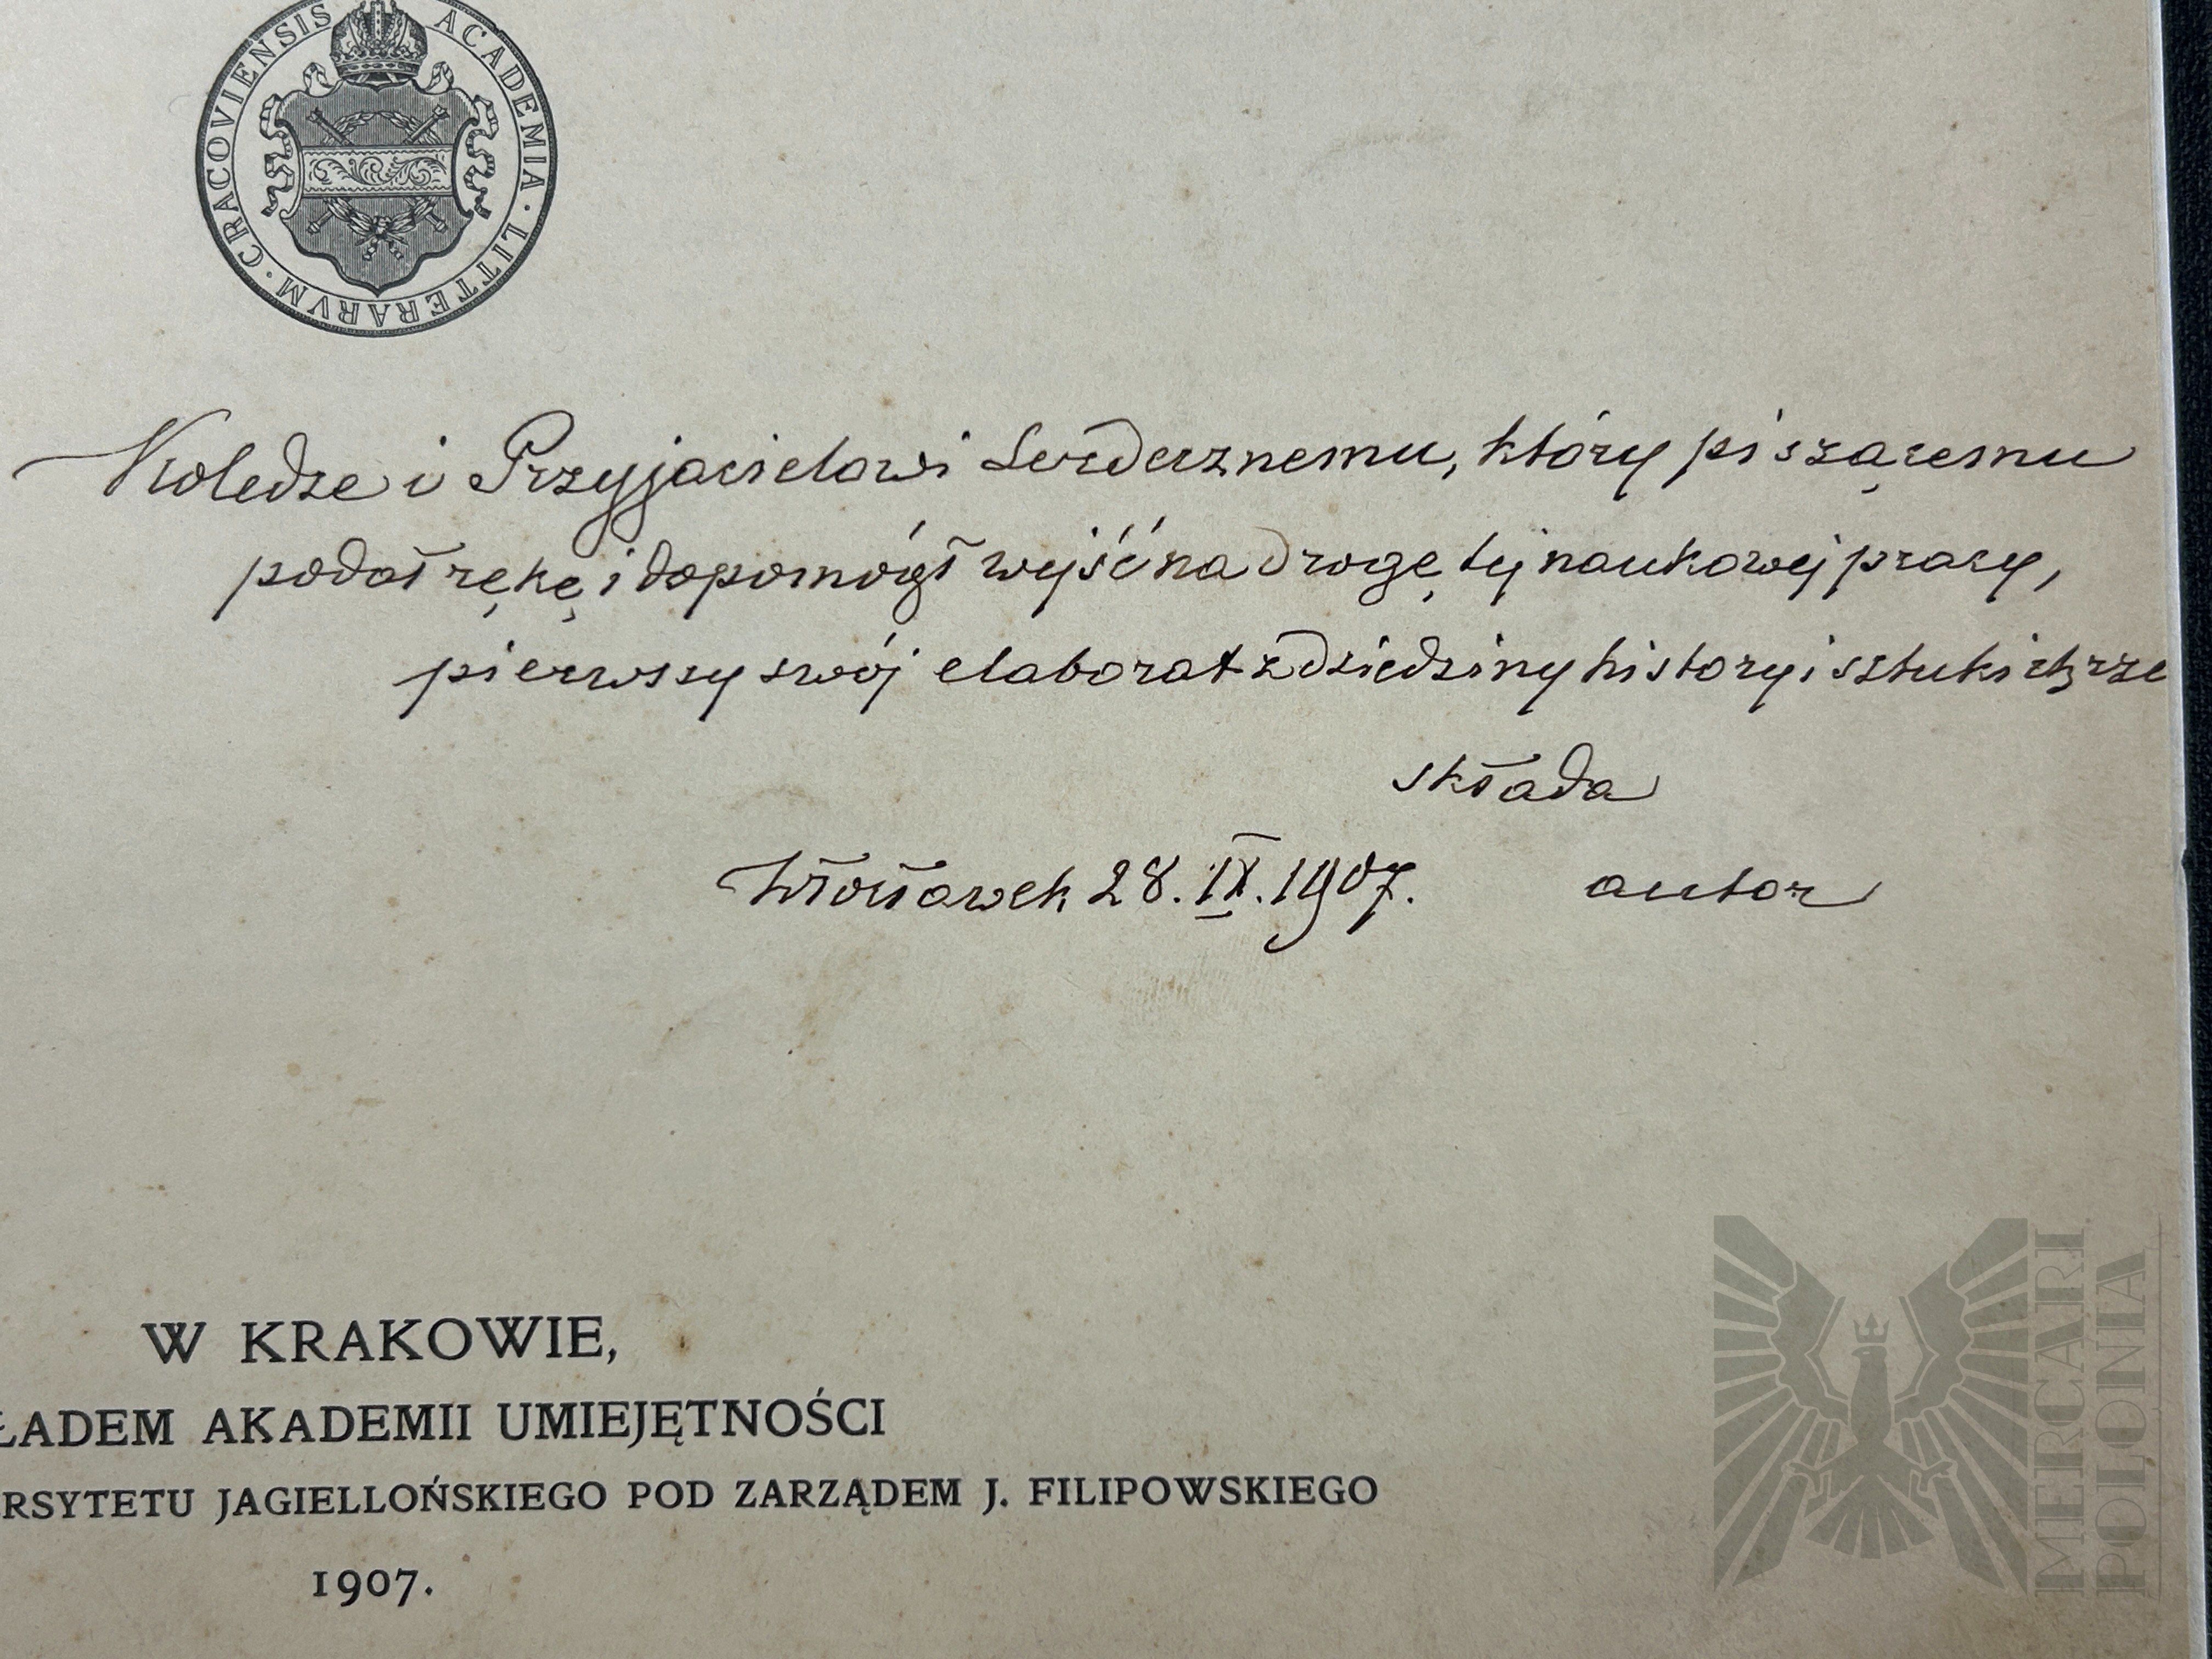 CRACOVIENSIS ACADEMIA · LITTERARVM ·
Koledze i Przyjacielowi Serdecznemu, który piszącemu
podał rękę i dopomógł wejść na drogę tej naukowej pracy,
pierwszy swój elaborat z dziedziny historyi sztuki
składa
Włocławek 28. IX. 1907. autor
W KRAKOWIE,
ŁADEM AKADEMII UMIEJĘTNOŚCI
RSYTETU JAGIELLOŃSKIEGO POD ZARZĄDEM J. FILIPOWSKIEGO
1907.
MERCARI
POLONIA